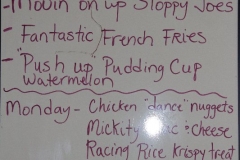 - Movin on up Sloppy Joes
- Fantastic French Fries
- "Push up" Pudding Cup
watermelon
Monday - Chicken "dance" nuggets
Mickity cheese
Racing Rice Krispy treat